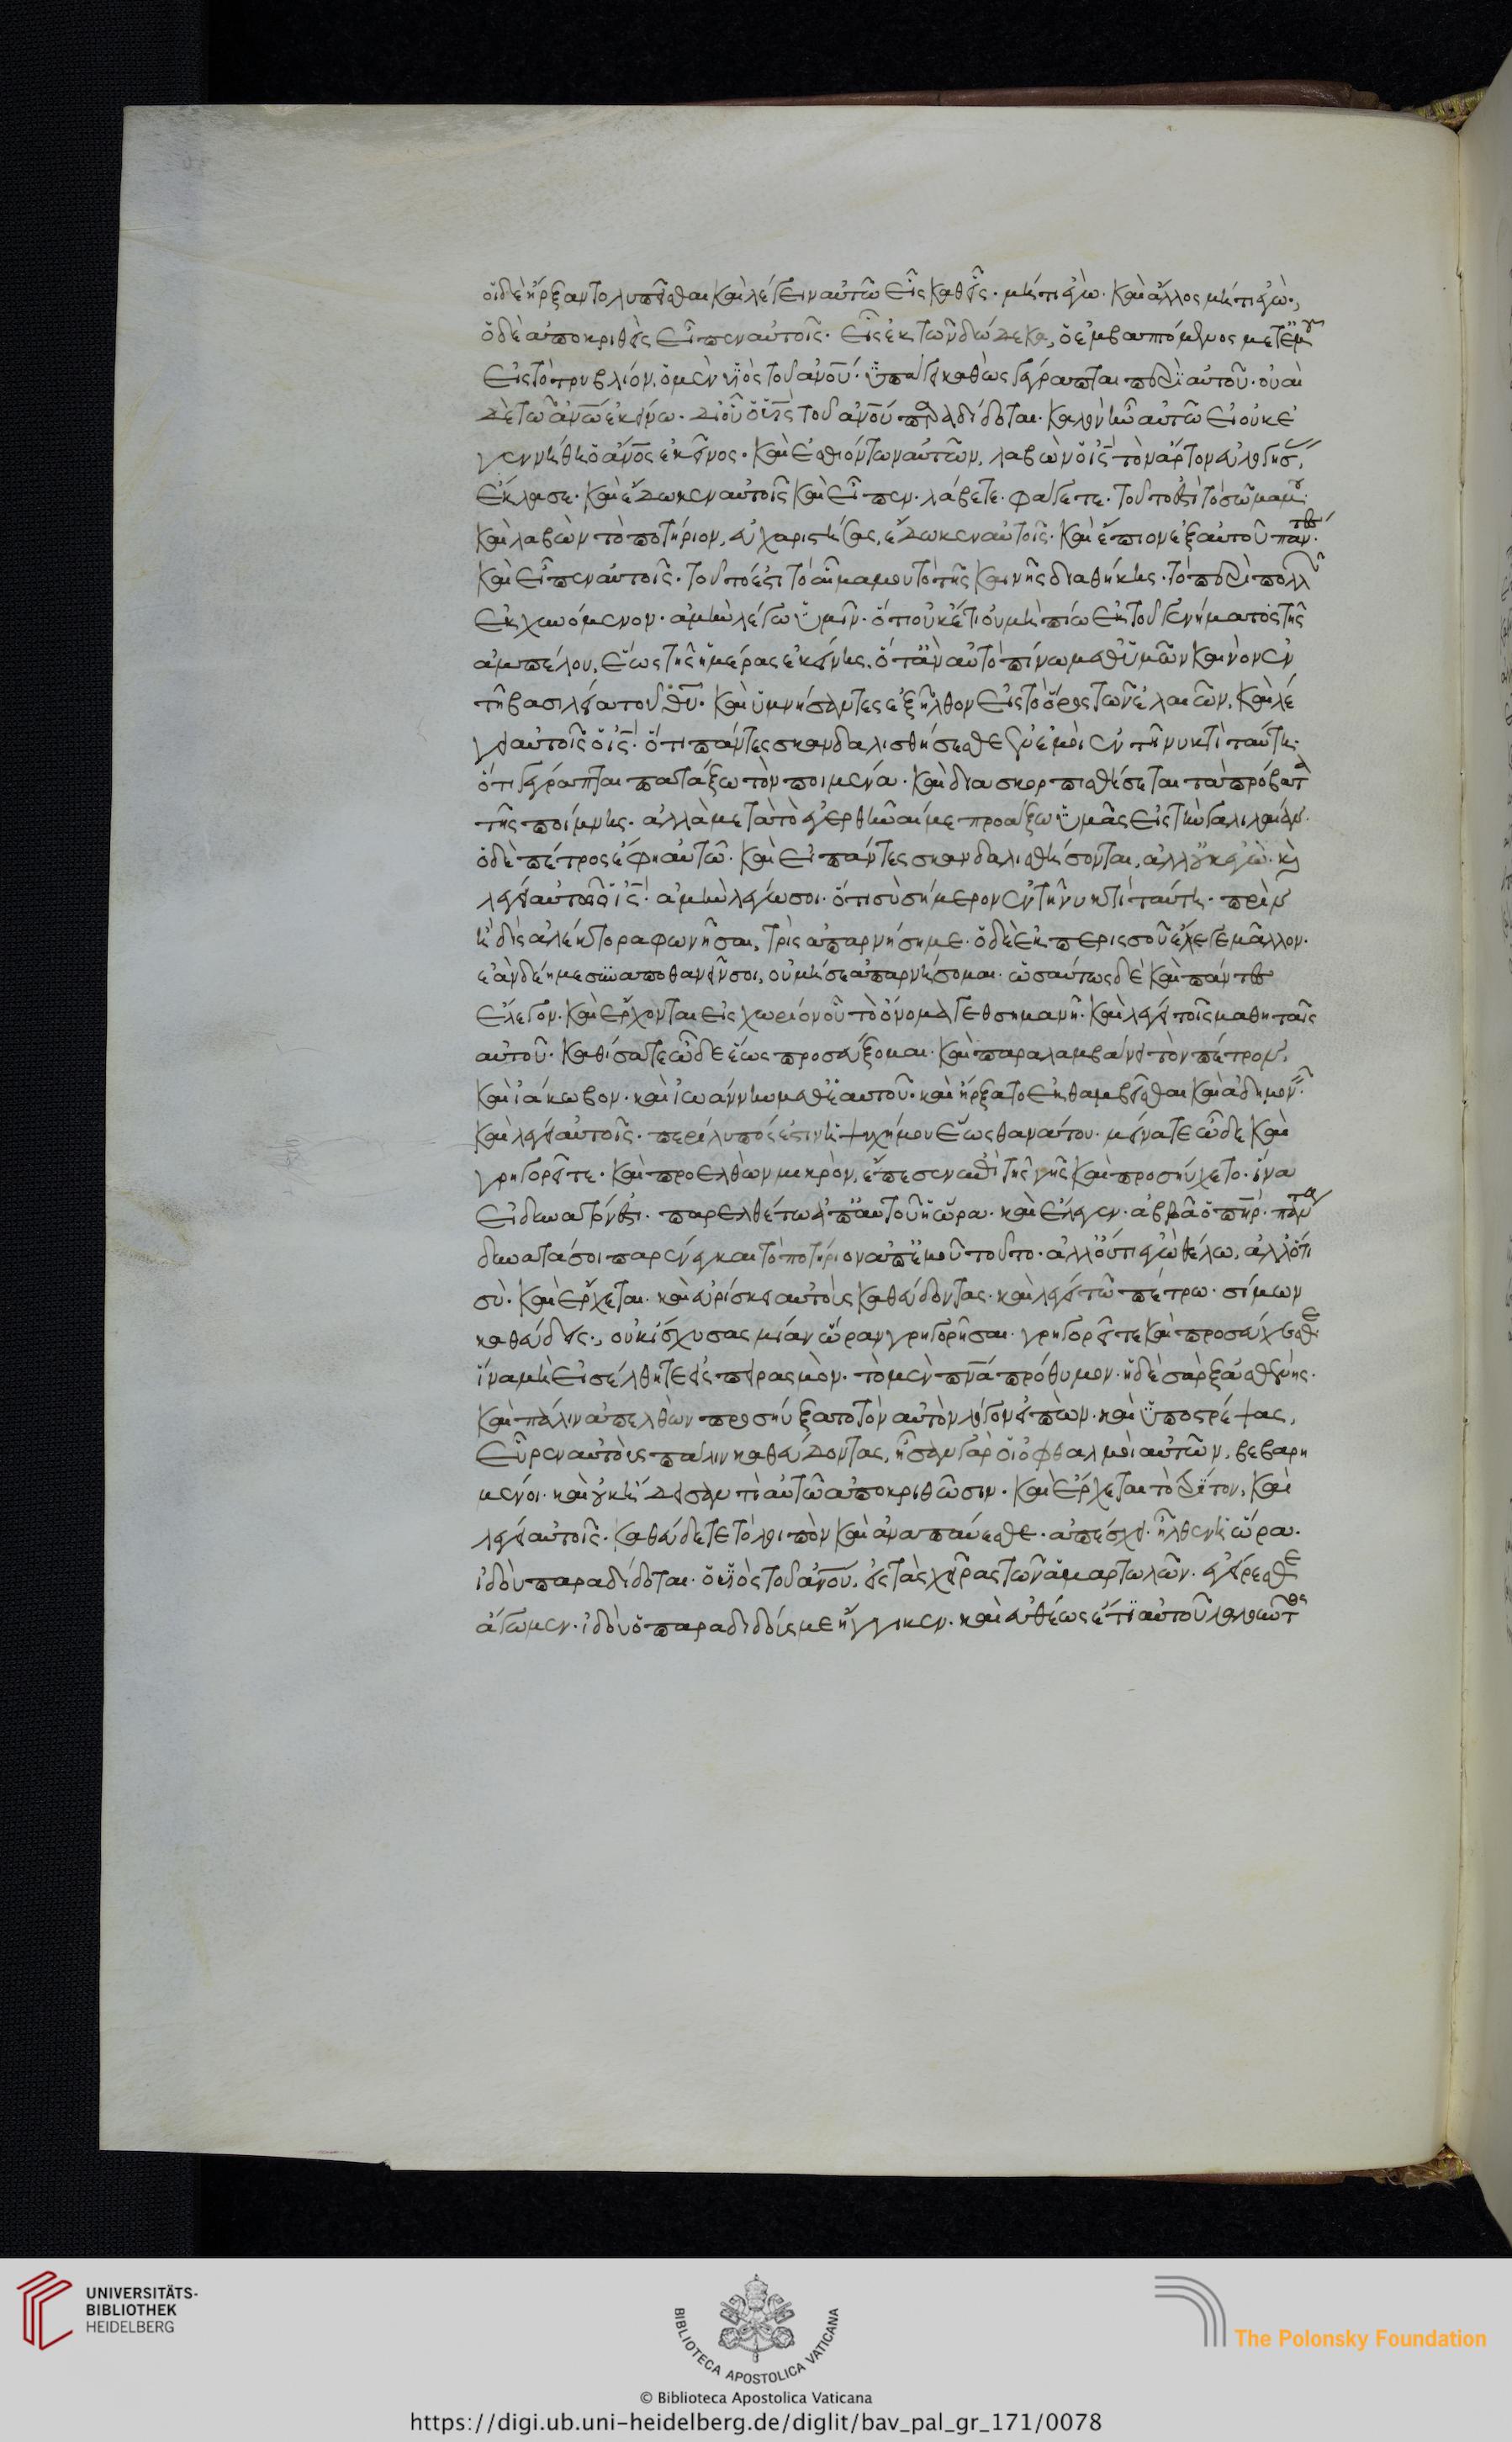 οἱ δὲ ἤρξαντο λυπεῖσθαι καὶ λέγειν αὐτῶ εἷς καθεῖς· μήτι ἐγὼ· καὶ ἄλλος μήτι ἐγὼ·,
ὁ δὲ ἀποκριθεὶς εἶπεν αὐτοῖς· εἷς ἐκ τῶν δώδεκα, ὁ ἐμβαπτόμενος μετ ἐμοῦ
εἰς τὸ τρυβλίον. ὁ μὲν υἱὸς τοῦ ἀνου· ὑπάγει καθὼς γέγραπται περὶ αὐτοῦ· οὐαὶ
δὲ τῶ ἀνω ἐκείνω· δι οὗ ὁ υἱς τοῦ ἀνου παραδίδοται· καλὸν ἦν αὐτῶ εἰ οὐκ ἐ
γεννήθη ὁ ἀνος ἐκεῖνος· καὶ ἐσθιόντων αὐτῶν, λαβὼν ὁ ις τὸν ἄρτον εὐλογήσας,
ἔκλασε· καὶ ἔδωκεν αὐτοῖς καὶ εἶπεν· λάβετε· φάγετε· τοῦτο ἐστὶ τὸ σῶμα μου·
καὶ λαβὼν τὸ ποτήριον, εὐχαριστήσας, ἔδωκεν αὐτοῖς· καὶ ἔπιον ἐξ αὐτοῦ πάντες·
καὶ εἶπεν αὐτοῖς· τοῦτό ἐστι τὸ αἷμα μου τὸ τῆς καινῆς διαθήκης· τὸ περὶ πολλῶν
ἐκχυνόμενον· ἀμὴν λέγω ὑμῖν· ὅτι οὐκέτι οὐ μὴ πίω ἐκ τοῦ γενήματος τῆς
ἀμπέλου, ἕως τῆς ἡμέρας ἐκείνης, ὅταν αὐτὸ πίνω μεθ ὑμῶν καινὸν ἐν
τῆ βασιλεία τοῦ θυ· καὶ ὑμνήσαντες ἐξῆλθον εἰς τὸ ὄρος τῶν ἐλαιῶν. καὶ λέ
γει αὐτοῖς ὁ ις· ὅτι πάντες σκανδαλισθήσεσθε ἐν ἐμοὶ ἐν τῆ νυκτὶ ταύτη·
ὅτι γέγραπται πατάξω τὸν ποιμένα· καὶ διασκορπισθήσεται τὰ πρόβατα
τῆς ποίμνης· ἀλλὰ μετὰ τὸ ἐγερθῆναί με προάξω ὑμᾶς εἰς τὴν γαλιλαίαν·
ὁ δὲ πέτρος ἔφη αὐτῶ· καὶ εἰ πάντες σκανδαλισθήσονται, ἀλλ οὐκ ἐγὼ· κὶ
λέγει αὐτῶ ὁ ις· ἀμὴν λέγω σοι· ὅτι σὺ σήμερον ἐν τῆ νυκτὶ ταύτη· πρὶν
ἢ δὶς ἀλέκτορα φωνῆσαι, τρὶς ἀπαρνήση με· ὁ δὲ ἐκ περισσοῦ ἔλεγε μᾶλλον·
ἐὰν δέη με συναποθανεῖν σοι, οὐ μή σε ἀπαρνήσομαι· ὡσαύτως δὲ καὶ πάντες
ἔλεγον· καὶ ἔρχονται εἰς χωρίον οὗ τὸ ὄνομα γεθσημανῆ· καὶ λέγει τοῖς μαθηταῖς
αὐτοῦ· καθίσατε ὧδε ἕως προσεύξομαι· καὶ παραλαμβάνει τὸν πέτρον,
καὶ ἰάκωβον· καὶ ἰωάννην μεθ ἑαυτοῦ· καὶ ἤρξατο ἐκθαμβεῖσθαι καὶ ἀδημονεῖν·
καὶ λέγει αὐτοῖς· περίλυπός ἐστιν ἡ ψυχή μου ἕως θανάτου· μείνατε ὧδε καὶ
γρηγορεῖτε· καὶ προελθὼν μικρὸν, ἔπεσεν ἐπὶ τῆς γῆς καὶ προσηύχετο· ἵνα
εἰ δυνατόν ἐστι· παρέλθη ἀπ αὐτοῦ ἡ ὥρα· καὶ ἔλεγεν· ἀββᾶ ὁ πηρ· πάντα
δυνατά σοι παρένεγκαι τὸ ποτήριον ἀπ ἐμοῦ τοῦτο· ἀλλ οὐ τί ἐγὼ θέλω, ἀλλ ὅτι
σὺ· καὶ ἔρχεται· καὶ εὑρίσκει αὐτοὺς καθεύδοντας· καὶ λέγει τῶ πέτρω· σίμων
καθεύδεις·, οὐκ ἴσχυσας μίαν ὥραν γρηγορῆσαι· γρηγορεῖτε καὶ προσεύχεσθε
ἵνα μὴ εἰσέλθητε εἰς πειρασμὸν· τὸ μὲν πνα πρόθυμον· ἡ δὲ σὰρξ ἀσθενής·
καὶ πάλιν ἀπελθὼν προσηύξατο τὸν αὐτὸν λόγον εἰπὼν· καὶ ὑποστρέψας,
εὗρεν αὐτοὺς πάλιν καθεύδοντας, ἦσαν γὰρ οἱ ὀφθαλμοὶ αὐτῶν, βεβαρη
μένοι· καὶ οὐκ ἤδεισαν τί αὐτῶ ἀποκριθῶσιν· καὶ ἔρχεται τὸ τρίτον, καὶ
λέγει αὐτοῖς· καθεύδετε τὸ λοιπὸν καὶ ἀναπαύεσθε· ἀπέχει· ἦλθεν ἡ ὥρα·
ἰδοὺ παραδίδοται· ὁ υἱὸς τοῦ ἀνου, εἰς τὰς χεῖρας τῶν ἁμαρτωλῶν· ἐγείρεσθε
ἄγωμεν· ἰδοὺ ὁ παραδιδούς με ἤγγικεν· καὶ εὐθέως ἔτι αὐτοῦ λαλοῦντος
UNIVERSITÄTS-
BIBLIOTHEK
HEIDELBERG
BIBLIOTECA APOSTOLICA VATICANA
© Biblioteca Apostolica Vaticana
The Polonsky Foundation
https://digi.ub.uni-heidelberg.de/diglit/bav_pal_gr_171/0078